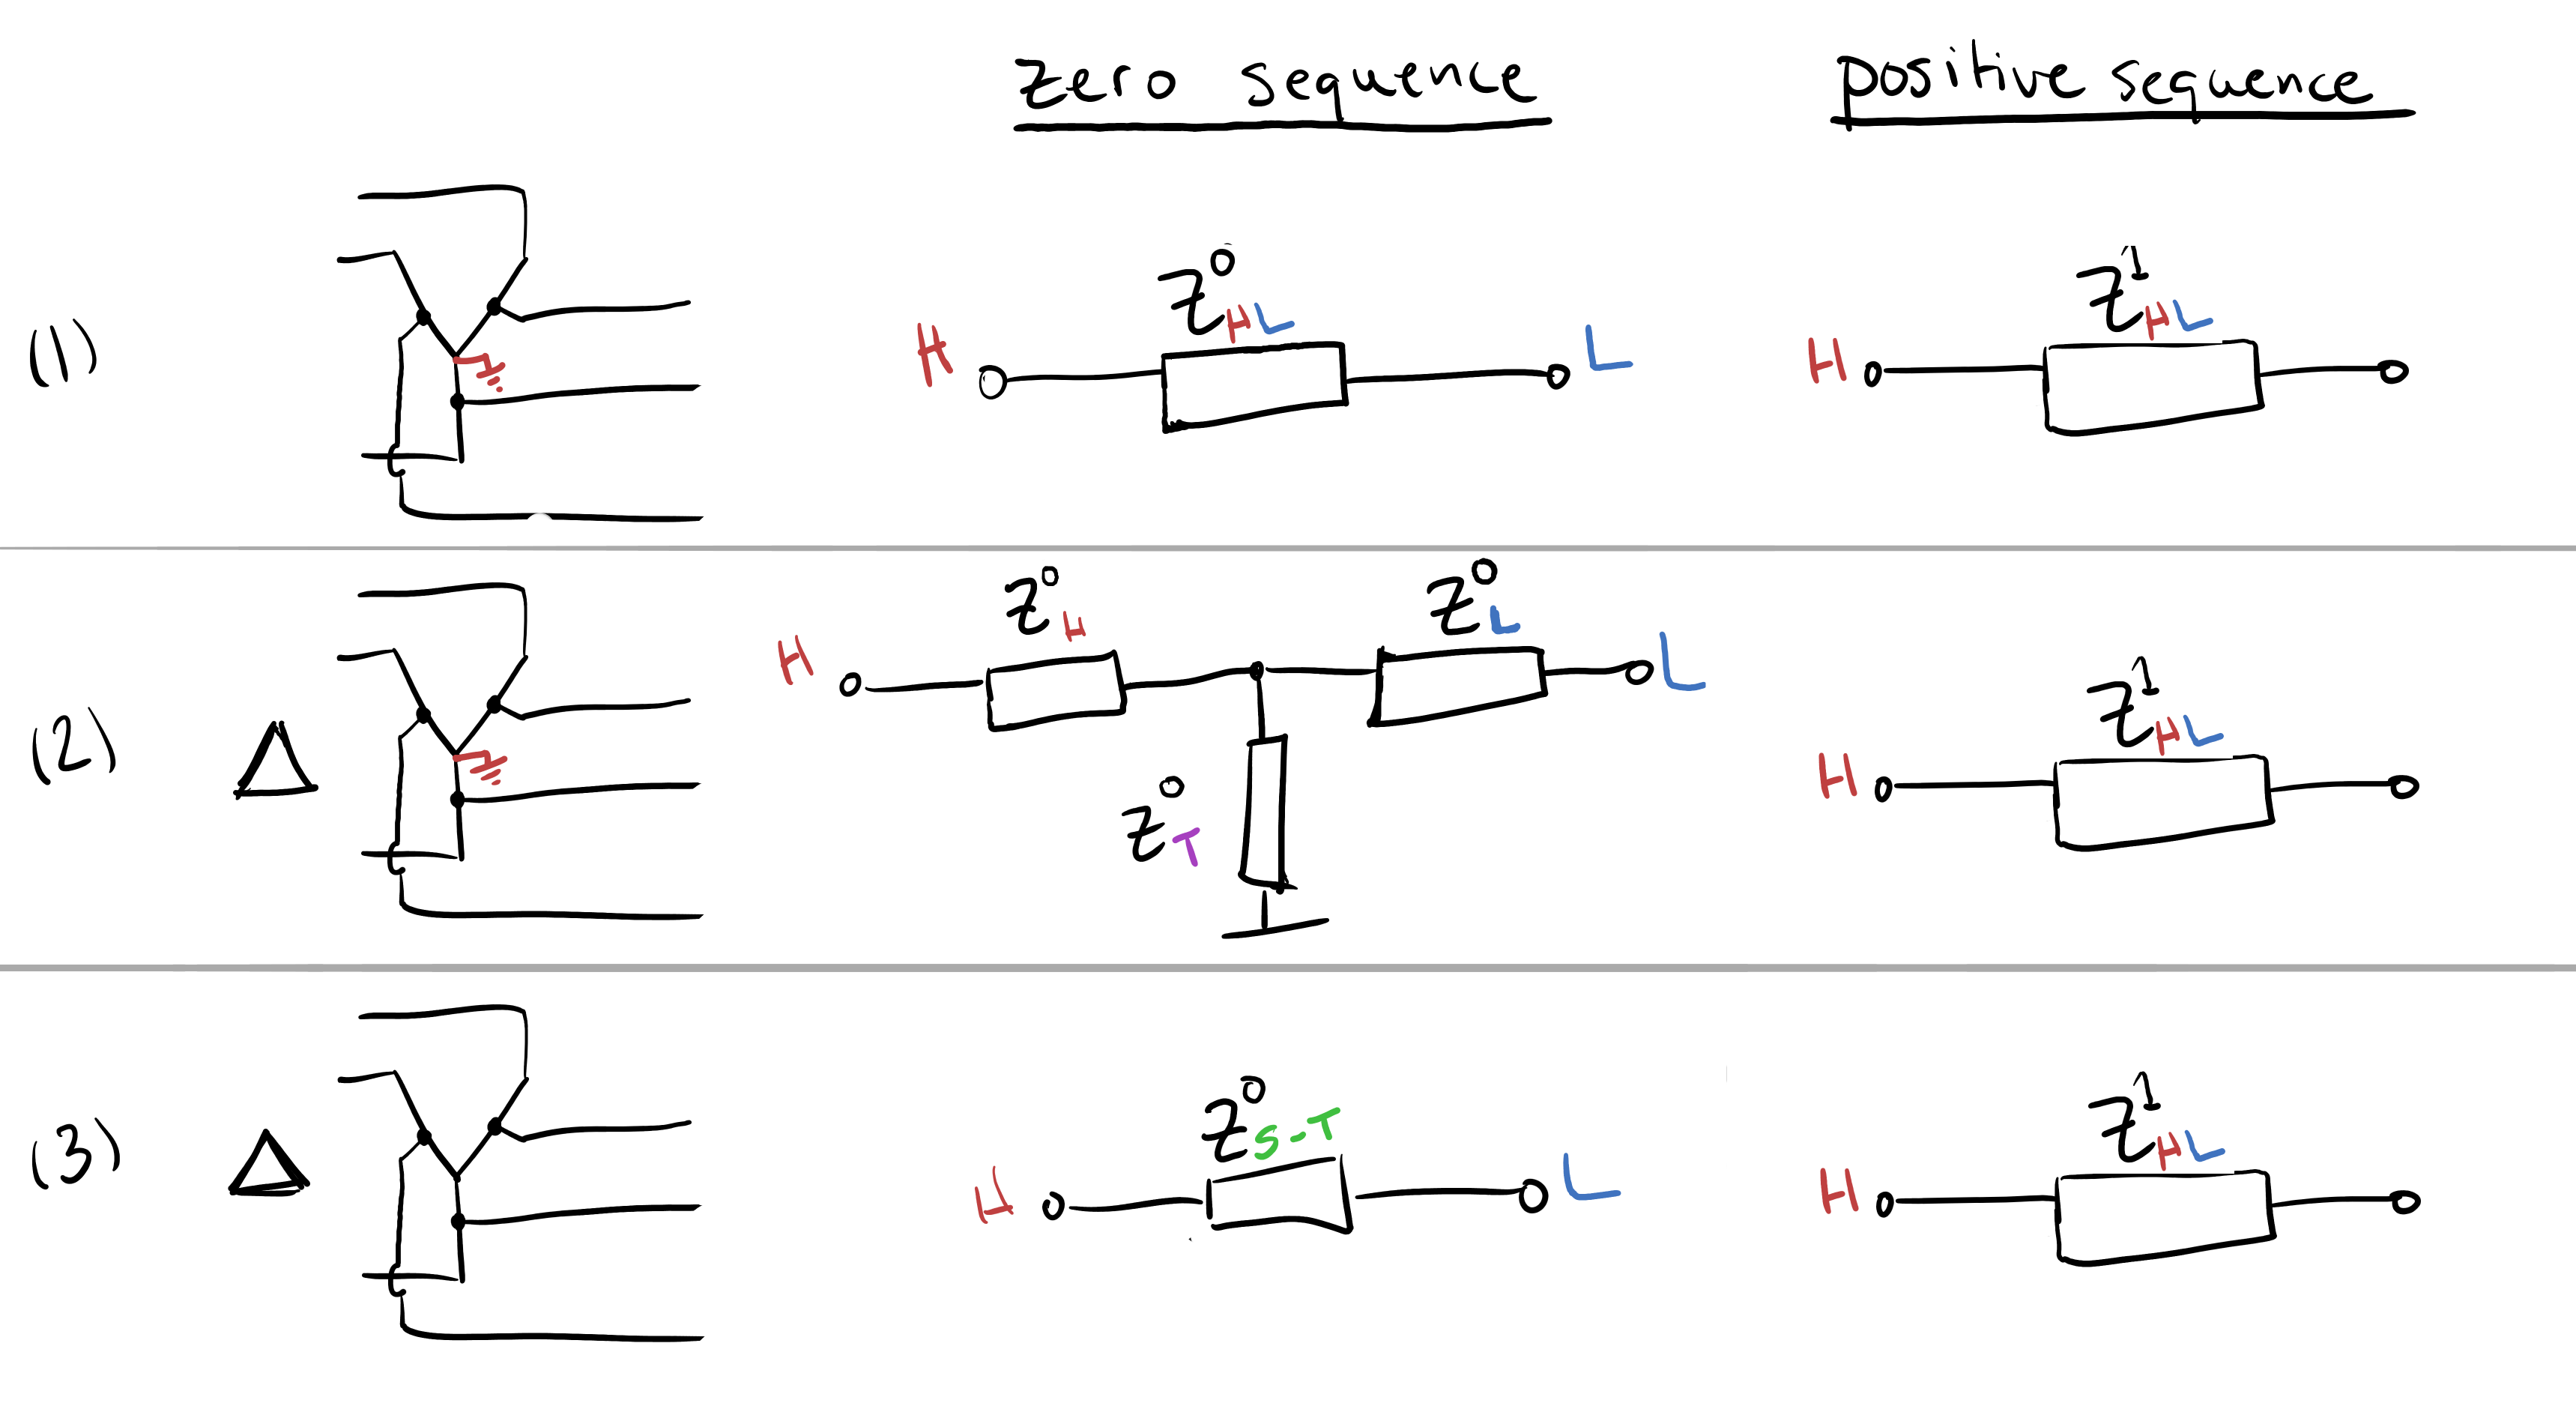 zero sequence
positive sequence
(1)
H
Z⁰HL
L
H
Z¹HL
(2)
H
Z⁰H
Z⁰L
L
Z⁰T
H
Z¹HL
(3)
H
Z⁰S-T
L
H
Z¹HL